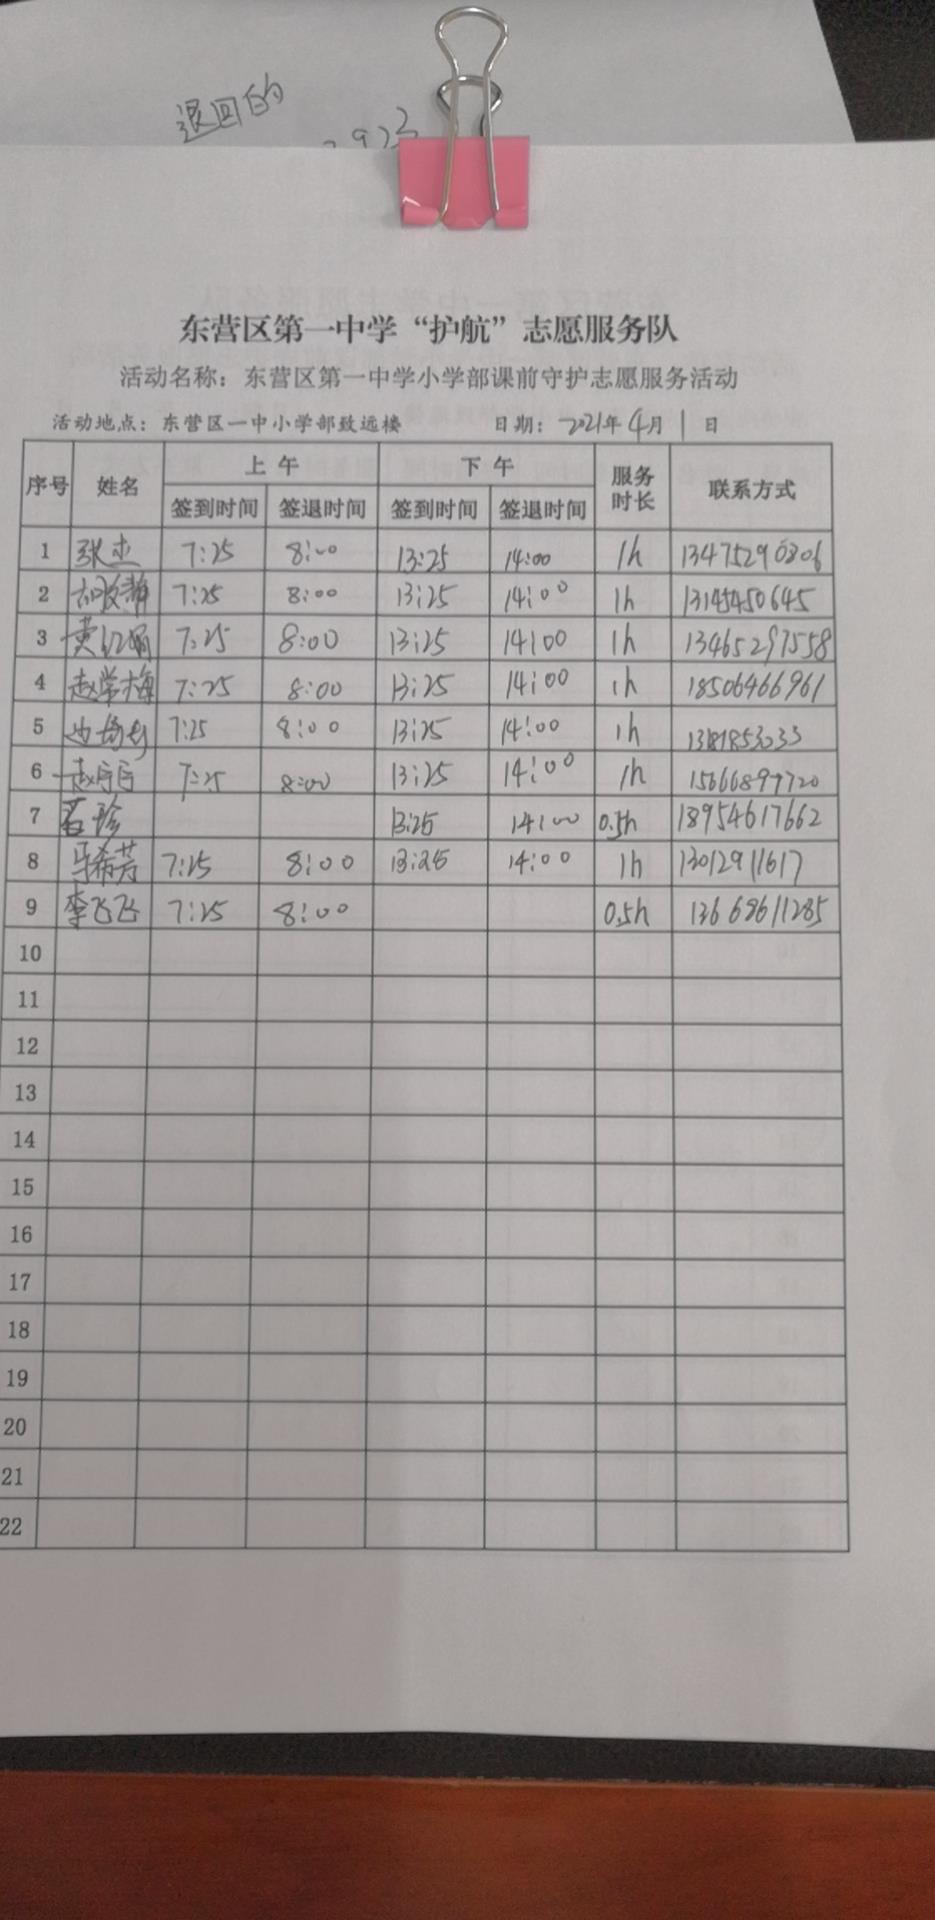 退回的
东营区第一中学“护航”志愿服务队
活动名称：东营区第一中学小学部课前守护志愿服务活动
活动地点：东营区一中小学部致远楼 日期：2021年4月1日
序号 姓名 上午 下午 服务时长 联系方式
签到时间 签退时间 签到时间 签退时间
1 张杰 7:25 8:00 13:25 14:00 1h 13475290806
2 7:25 8:00 13:25 14:00 1h 13145450645
3 7:25 8:00 13:25 14:00 1h 13465297558
4 赵学梅 7:25 8:00 13:25 14:00 1h 18506466961
5 7:25 8:00 13:25 14:00 1h
6 7:25 8:00 13:25 14:00 1h 15666897720
7 13:25 14:00 0.5h 18954617662
8 马希芳 7:25 8:00 13:25 14:00 1h 13012911617
9 李飞飞 7:25 8:00 0.5h 13668611285
10
11
12
13
14
15
16
17
18
19
20
21
22